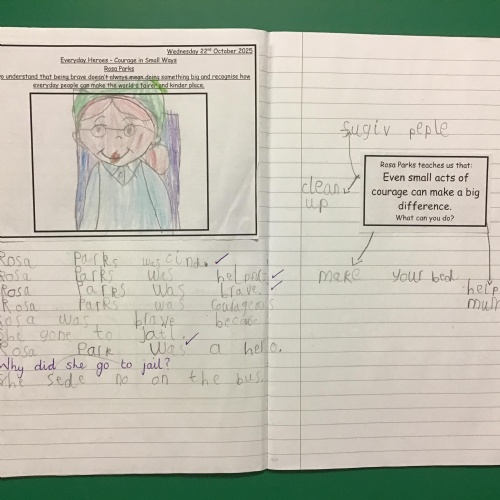 Wednesday 22nd October 2025
Everyday Heroes - Courage in Small Ways
Rosa Parks
o understand that being brave doesn't always mean doing something big and recognise how
everyday people can make the world a fairer and kinder place.
Rosa Parks was cind.
Rosa Parks was
Rosa Parks was brave.
Rosa Parks was courageous
Rosa was brave
She gone to jail.
Rosa Park was a hero.
Why did she go to jail?
She sede no on the bus.
peple
clean
up
Rosa Parks teaches us that:
Even small acts of
courage can make a big
difference.
What can you do?
make your bed
help
mum